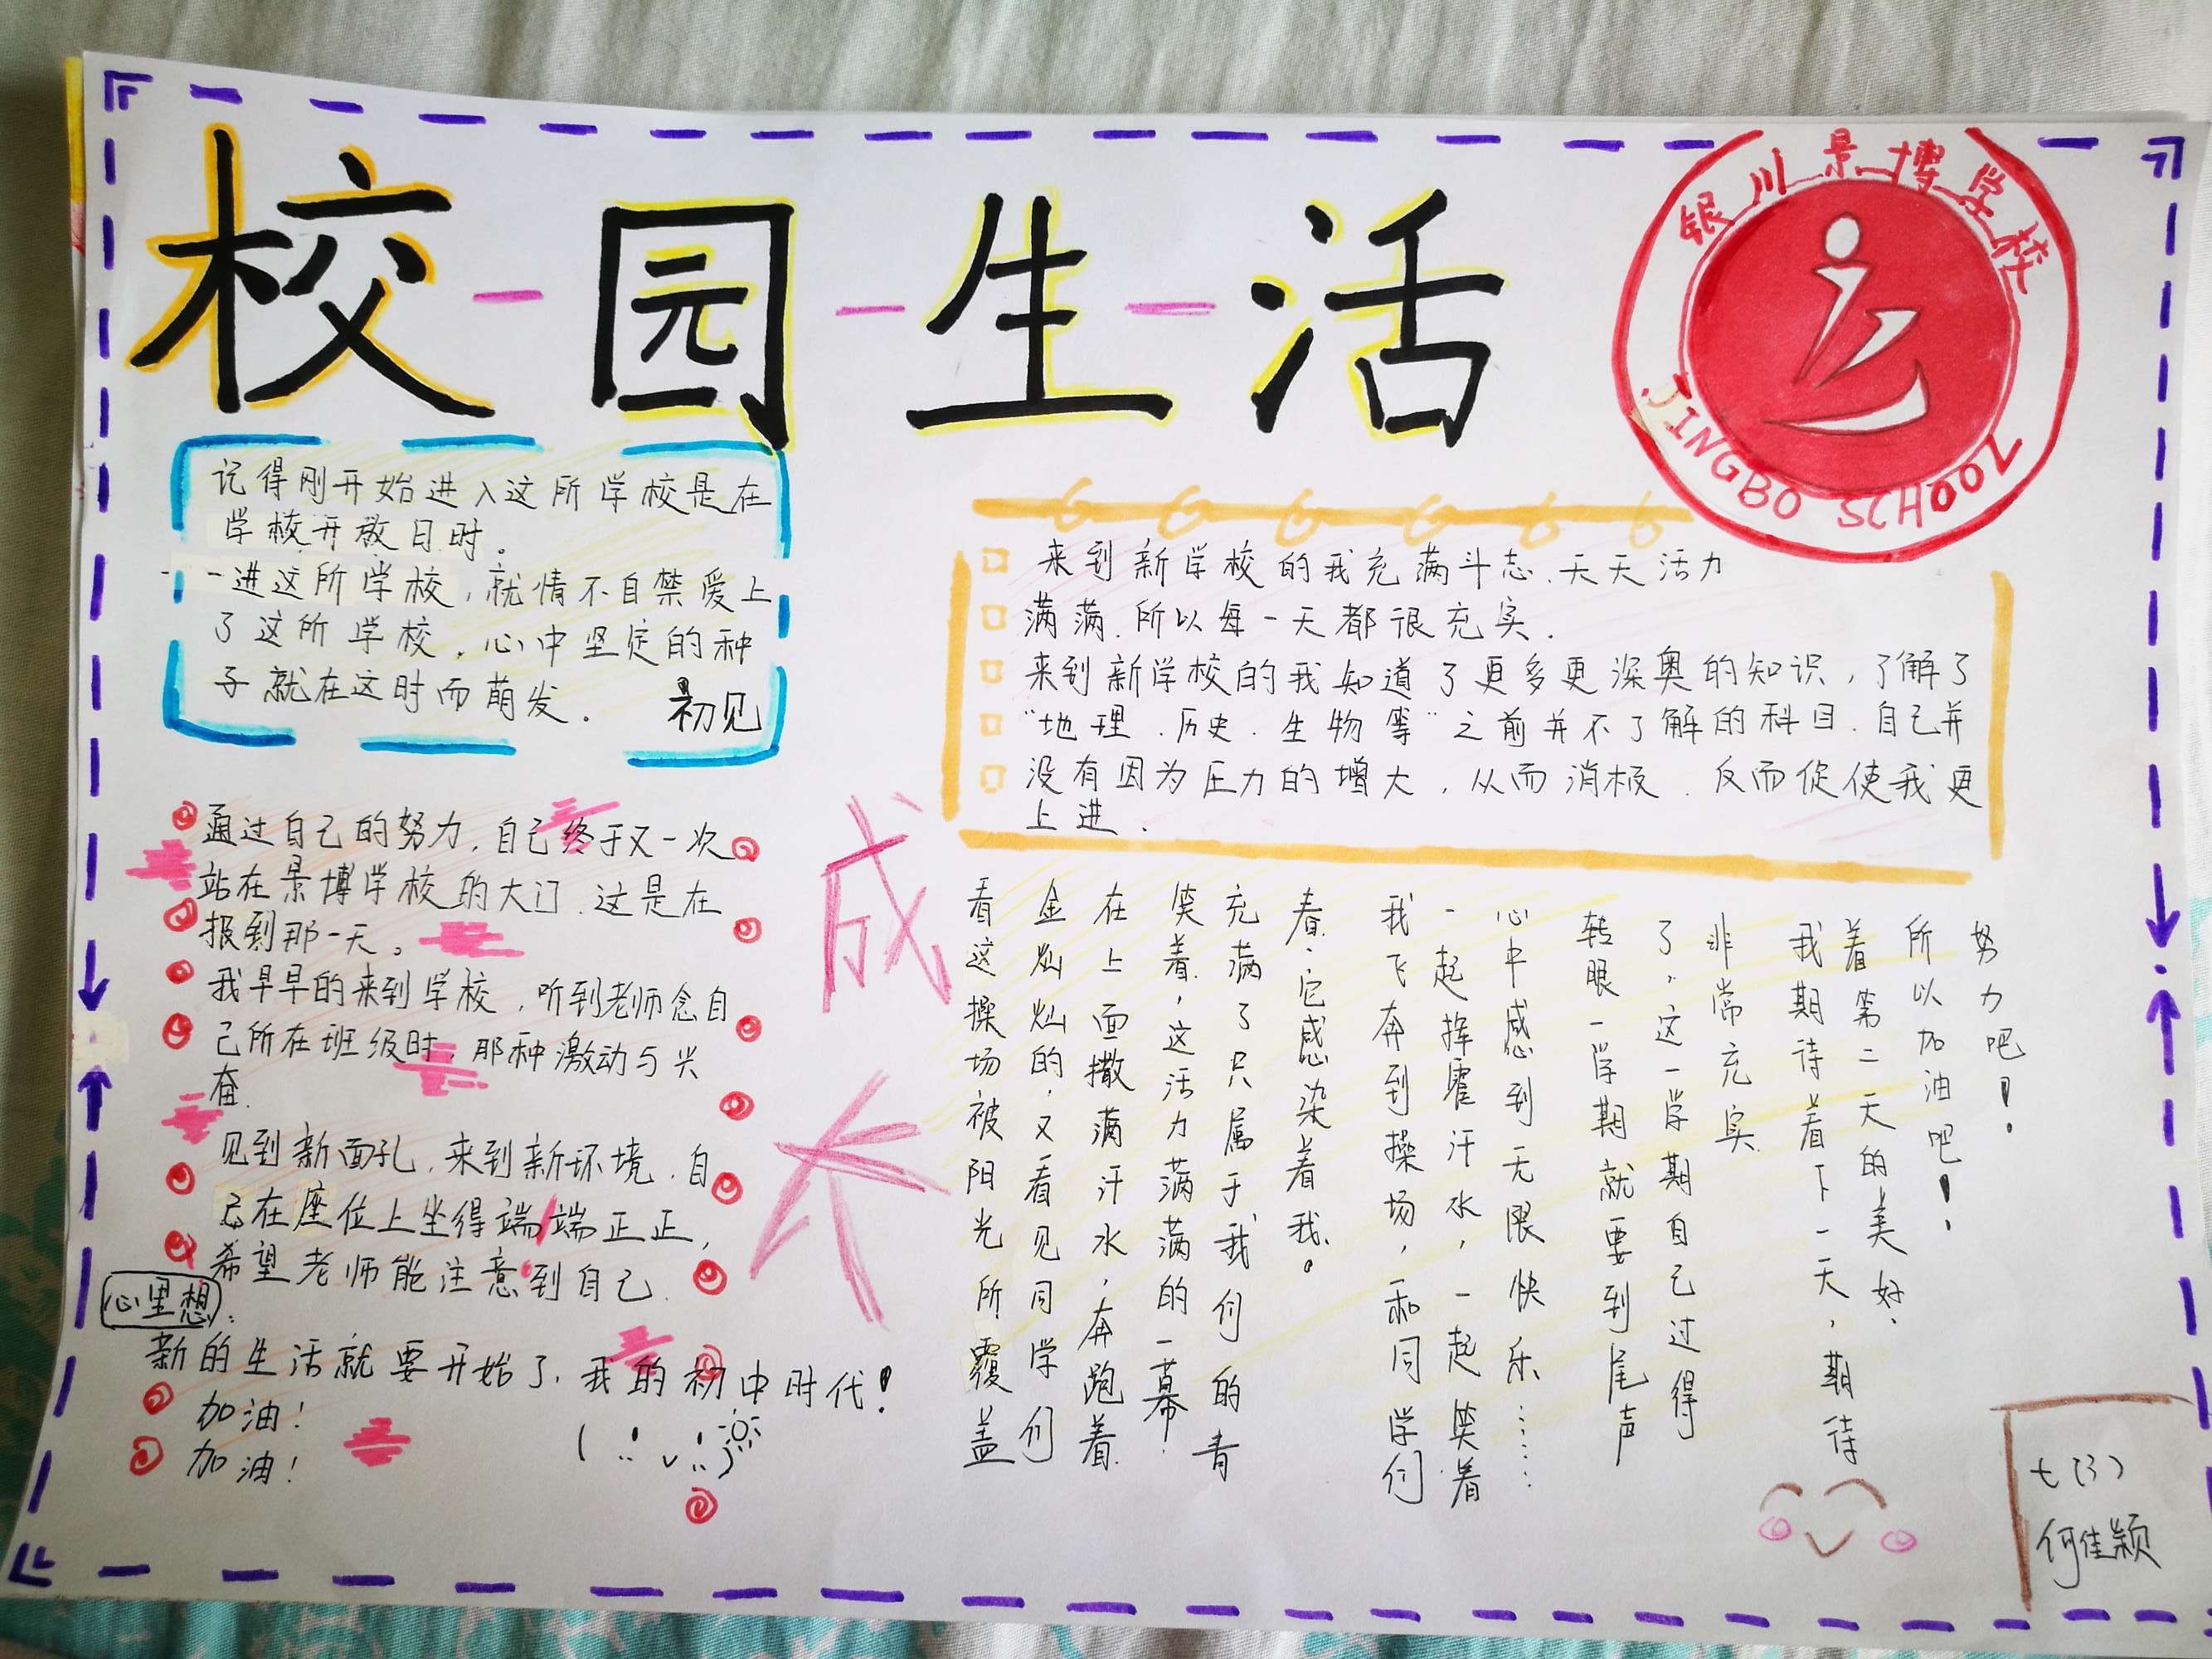 校-园-生-活
银川景博学校
JINGBO SCHOOL
记得刚开始进入这所学校是在
学校开放日时。
一进这所学校,就情不自禁爱上
了这所学校,心中坚定的种
子就在这时而萌发.
初见
来到新学校的我充满斗志、天天活力
满满.所以每一天都很充实.
来到新学校的我知道了更多更深奥的知识,了解了
“地理.历史.生物等”之前并不了解的科目.自己并
没有因为压力的增大,从而消极.反而促使我更
上进.
通过自己的努力,自己终于又一次
站在景博学校的大门.这是在
报到那一天。
我早早的来到学校,听到老师念自
己所在班级时,那种激动与兴
奋.
见到新面孔,来到新环境.自
己在座位上坐得端端正正,
希望老师能注意到自己.
心里想:
新的生活就要开始了,我的初中时代!
加油!
加油!
成长
看这操场被阳光所覆盖
金灿灿的,又看见同学们
在上面撒满汗水,奔跑着.
笑着,这活力满满的一幕.
充满了只属于我们的青
春.它感染着我.。
我飞奔到操场,和同学们
一起挥霍汗水,一起笑着
心中感到无限快乐……
转眼一学期就要到尾声
了,这一学期自己过得
非常充实
我期待着下一天,期待
着第二天的美好.
所以加油吧!.
努力吧!.
七(3)
何佳颖